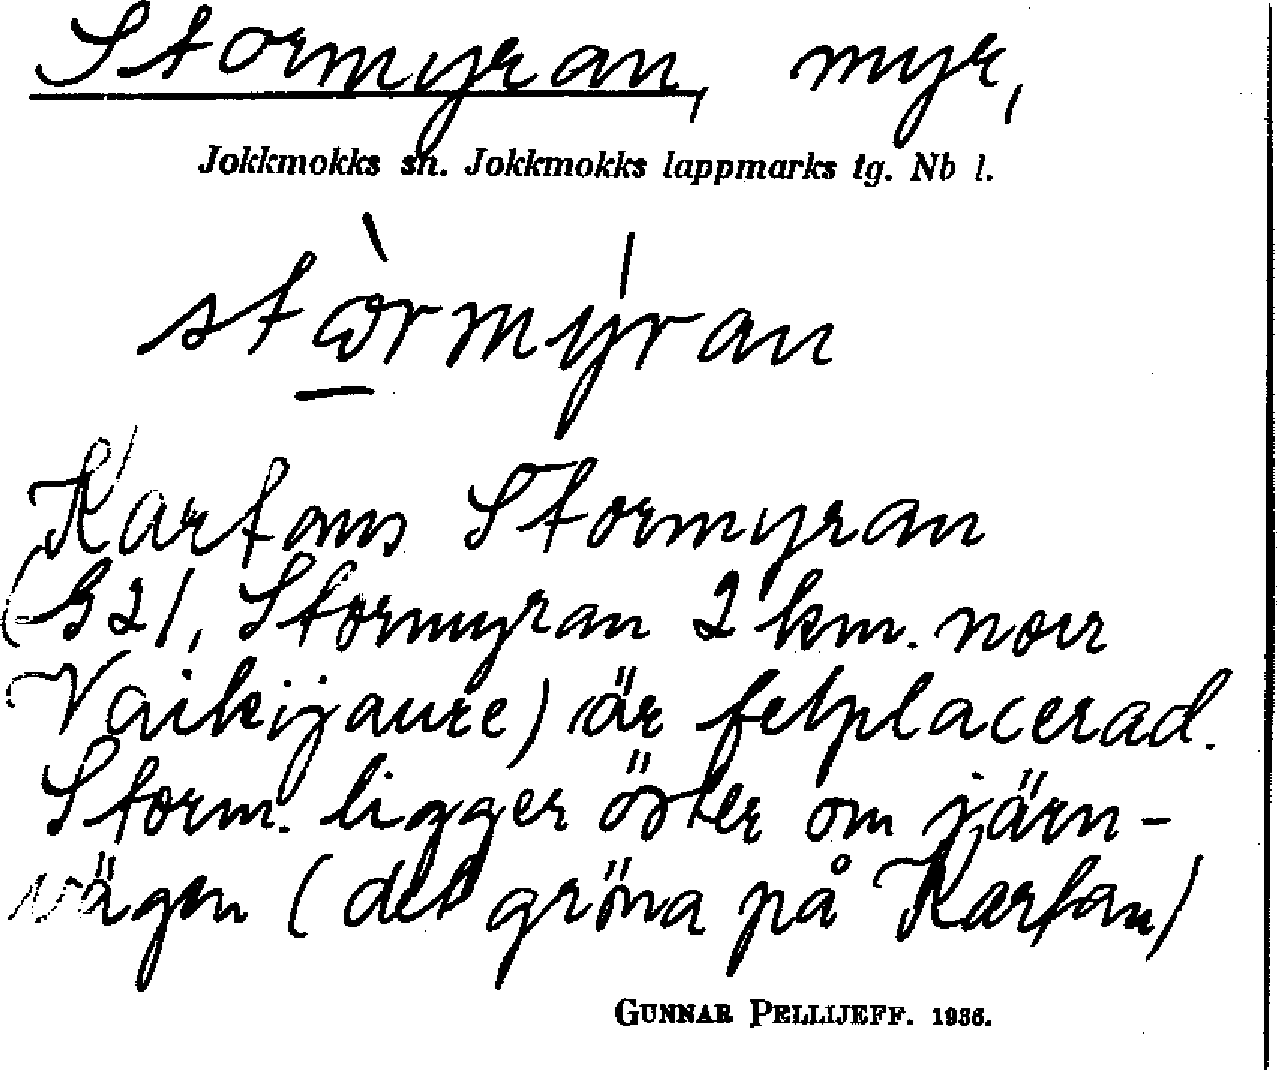 Stormyran, myr,
Jokkmokks sn. Jokkmokks lappmarks tg. Nb l.
stòrmýran
Kartans Stormyran
(321, Stormyran 2 km. norr
Vaikijaure) är felplacerad.
Storm. ligger öster om järn-
vägen (det gröna på Kartan)
GUNNAR PELLIJEFF. 1936.